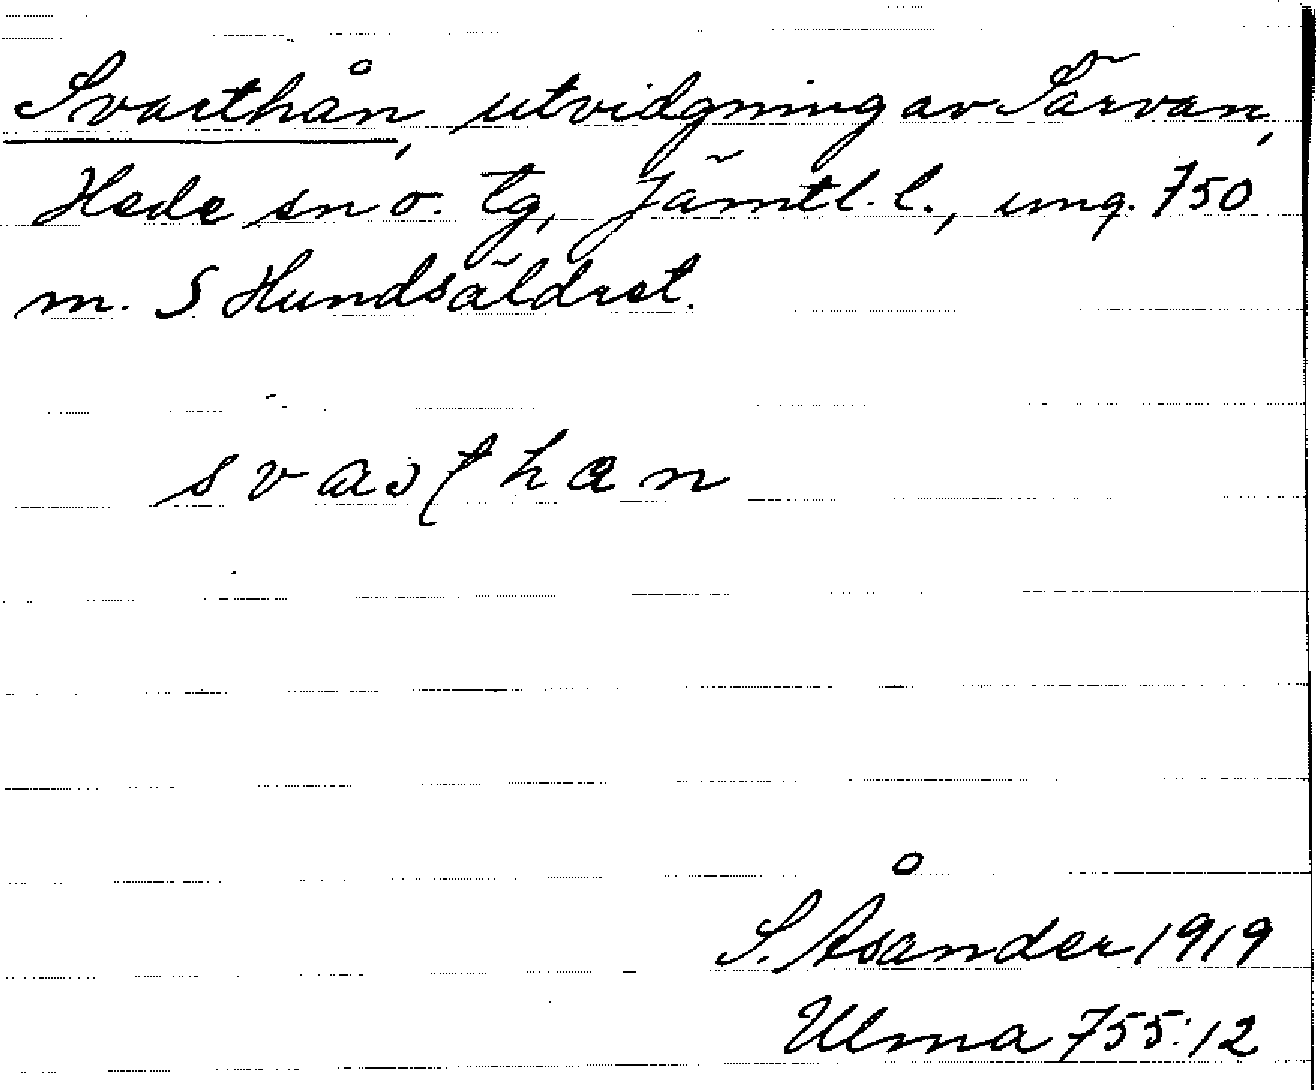 Svarthån, utvidgning av Tärvan,
Hede sn o. tg, Jämtl. l., ung. 750
m. S Hundsäldret.
S. Åsander 1919
Ulma 755:12